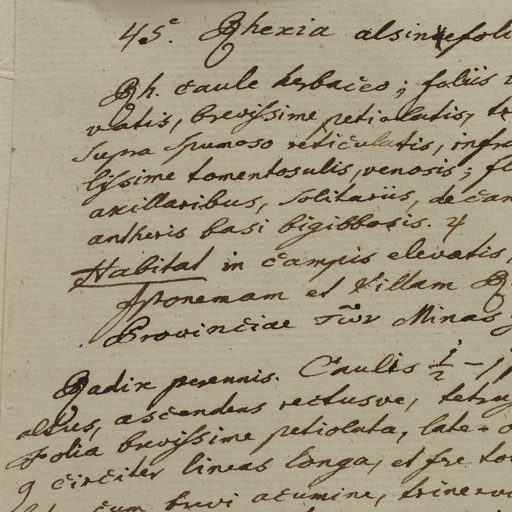 45.e Rhexia alsinefoli
Rh. caule herbaceo; foliis
vatis, brevissime petiolatis, te
supra spumoso reticulatis, infra
lissime tomentosulis, venosis; fl
axillaribus, solitariis, decan
antheris basi bigibbosis. ♃
Habitat in campis elevatis,
et Villam
Provinciae τῶν Minas
Radix perennis. Caulis 1/2 - 1
altus, ascendens rectusve, tetra
Folia brevissime petiolata, late-o
9 circiter lineas longa, et fre to
cum brevi acumine, trinerv